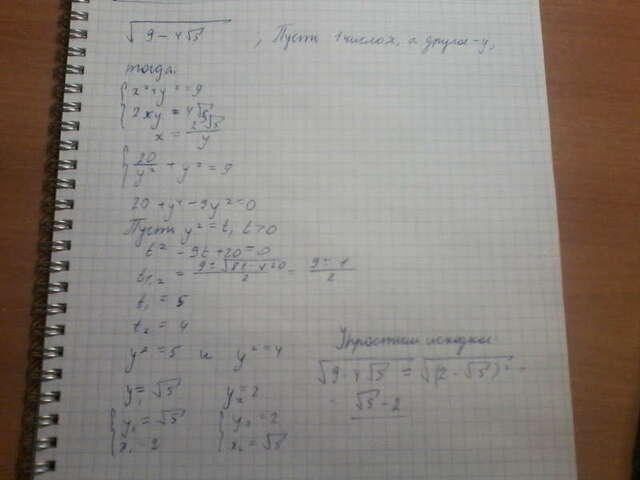 √(9 - 4√5) ; Пусть 1 число x, а другое - y,
тогда:
{ x² + y² = 9
{ 2xy = 4√5
x = 2√5/y
{ 20/y² + y² = 9
20 + y⁴ - 9y² = 0
Пусть y² = t, t > 0
t² - 9t + 20 = 0
t₁,₂ = (9 ± √(81 - 4·20))/2 = (9 ± 1)/2
t₁ = 5
t₂ = 4
y² = 5 и y² = 4
y = √5 y₂ = 2
{ y₁ = √5 { y₂ = 2
{ x₁ = 2 { x₂ = √5
Упростим исходное
√(9 - 4√5) = √((2 - √5)²) =
= √5 - 2